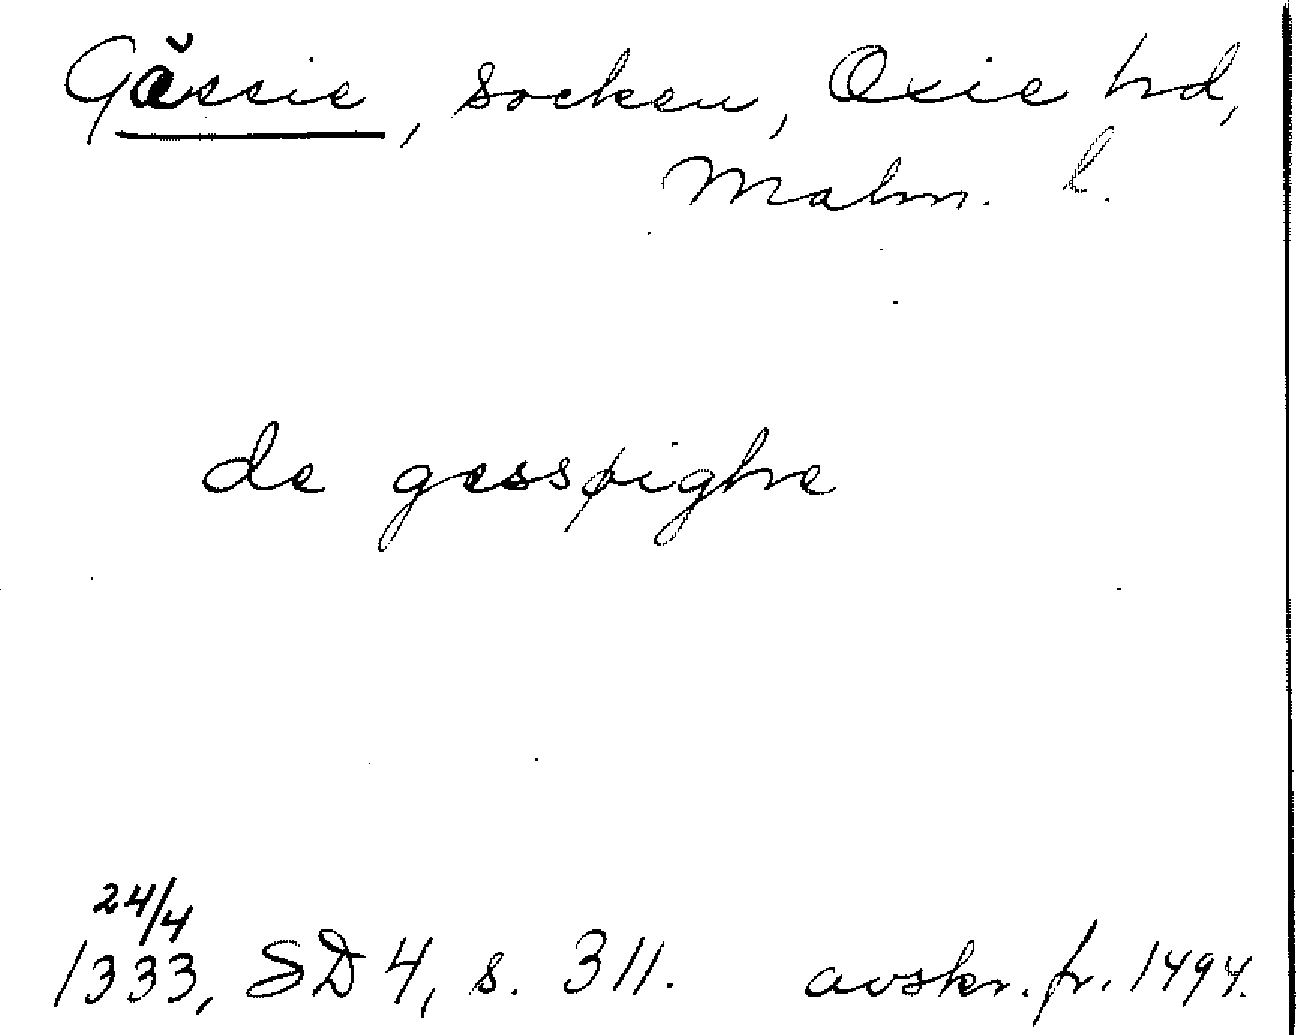 Gässie, socken, Oxie hd,
Malm. l.
de gesspighe
24/4
1333, SD 4, s. 311. avskr. fr. 1494.